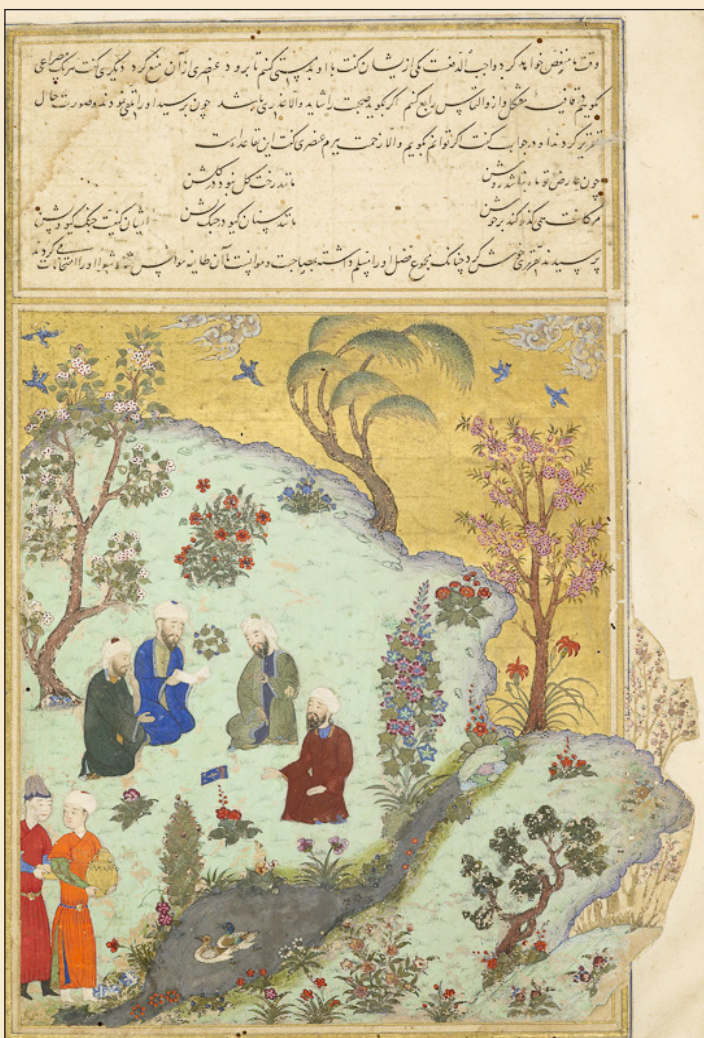 وقت ما منغص خواهد کرد واجب الدفعست یکی از ایشان گفت با او بدمستی کنیم تا برود عنصری از آن منع کرد دیگری گفت هر یک مصراعی
بگوییم قافیه مشکل و ازو التماس رابع کنیم اگر بگوید صحبت را شاید والا عذری باشد چون برسید او را تلقی نمودند و صورت حال
تقریر کردند او در جواب گفت اگر توانم بگویم والا زحمت ببرم عنصری گفت این قاعده است
چون عارض تو ماه نباشد روشن مانند رخت گل نبود در گلشن
مژگانت همی گذر کند بر جوشن مانند سنان گیو در جنگ پشن ایشان کیفیت جنگ گیو و پشن
پرسیدند تقریری خوش کرد چنانک مجموع فضل او را مسلم داشته بمصاحبت و موانست با آن طایفه موانس شد او را امتحانات می کردند